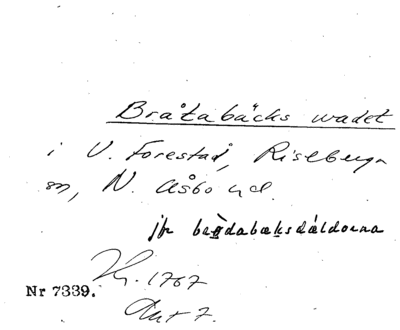 Bråtabäcks wadet
i V. Forestad, Riseberga
sn, N. Åsbo hd.
jfr
1767
Nr 7339.
Akt 7.